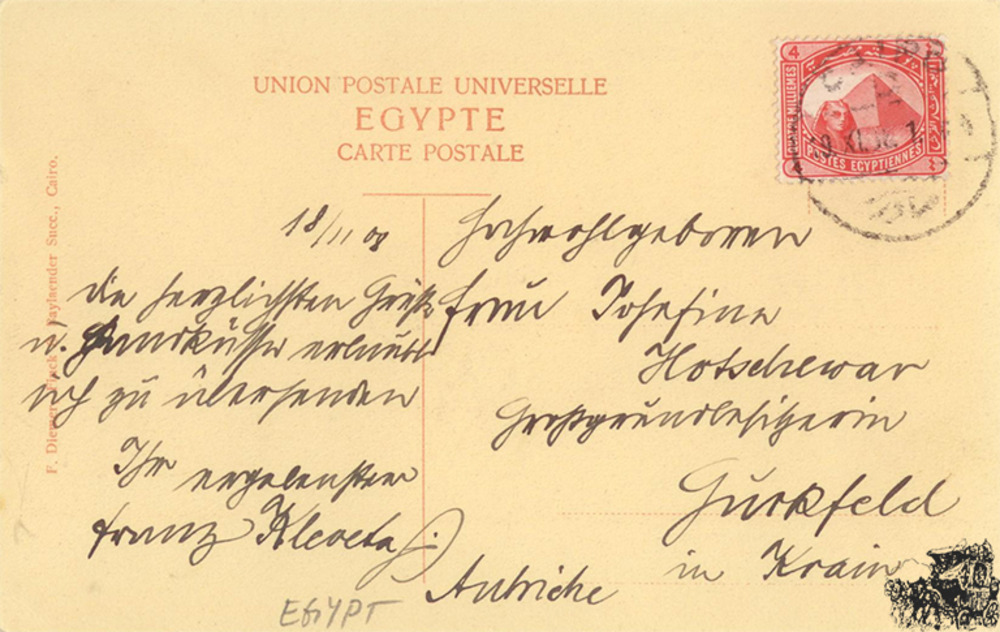 UNION POSTALE UNIVERSELLE
EGYPTE
CARTE POSTALE
4
MILLIEMES
POSTES EGYPTIENNES
CAIRO
F. Diemer, Finck & Baylaender Succ., Cairo.
18/11 08
die herzlichsten Grüße
u. Handküsse erlaubt
sich zu übersenden
Ihr ergebenster
Franz
Hochwohlgeboren
Frau Josefine
Hotschewar
Großgrundbesitzerin
Gurkfeld
in Krain
Autriche
EGYPT